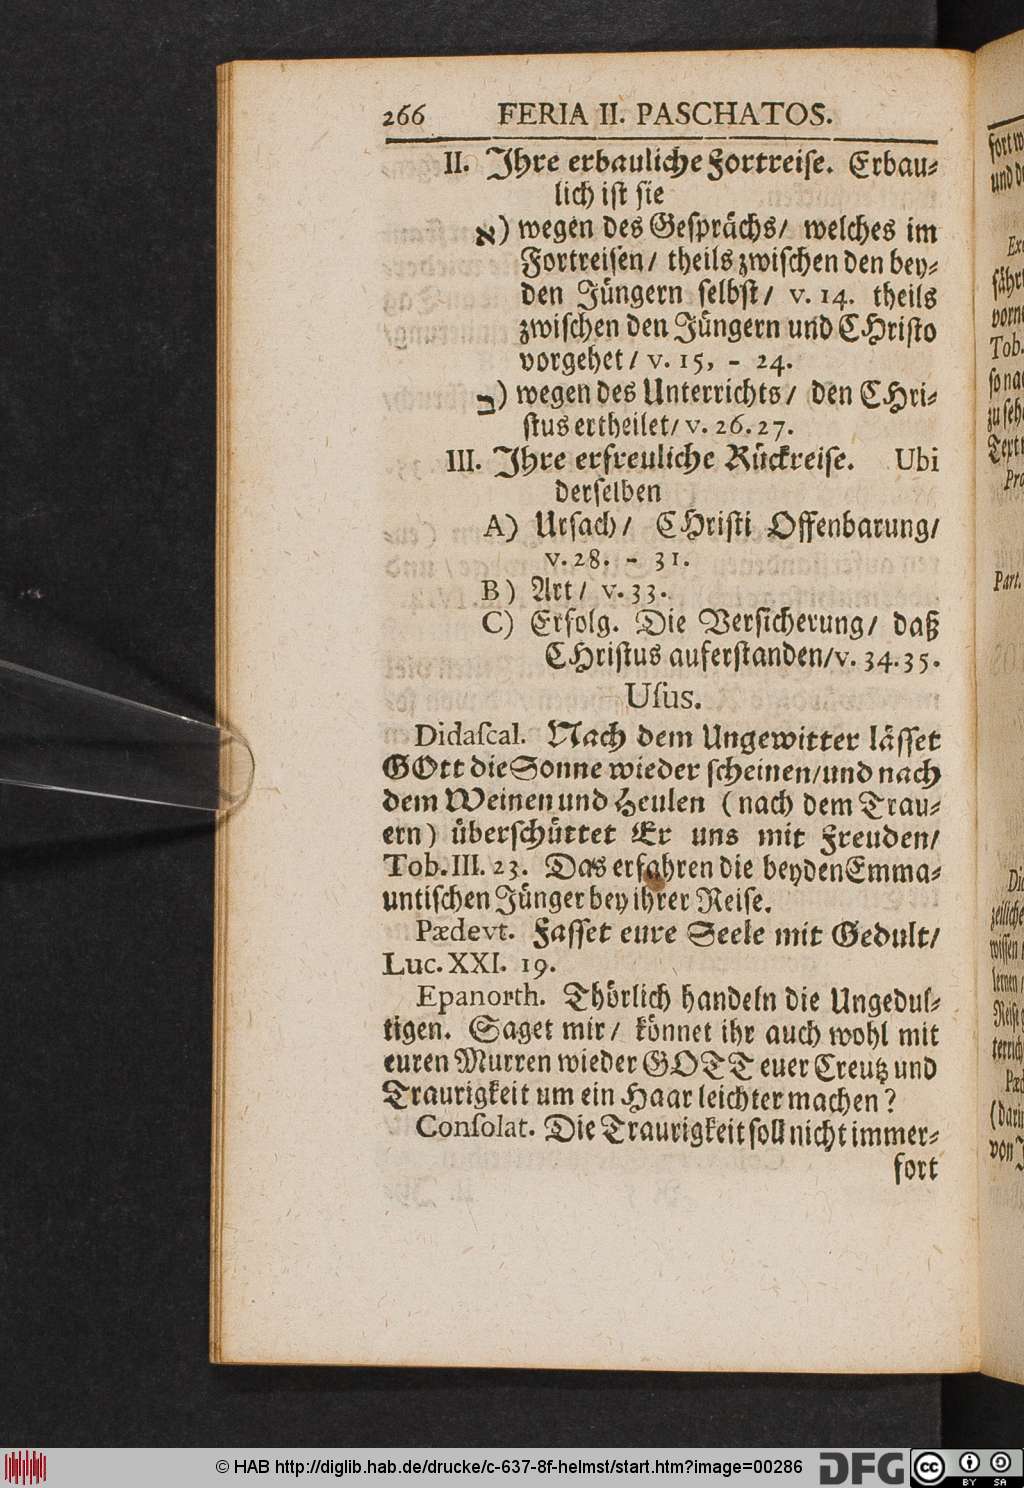 266 FERIA II. PASCHATOS.
II. Ihre erbauliche Fortreise. Erbau-
lich ist sie
א) wegen des Gesprächs/ welches im
Fortreisen/ theils zwischen den bey-
den Jüngern selbst/ v. 14. theils
zwischen den Jüngern und CHristo
vorgehet/ v. 15, - 24.
ב) wegen des Unterrichts/ den CHri-
stus ertheilet/ v. 26. 27.
III. Ihre erfreuliche Rückreise. Ubi
derselben
A) Ursach/ CHristi Offenbarung/
v. 28. - 31.
B) Art/ v. 33.
C) Erfolg. Die Versicherung/ daß
CHristus auferstanden/v. 34. 35.
Uſus.
Didaſcal. Nach dem Ungewitter lässet
GOtt die Sonne wieder scheinen/und nach
dem Weinen und Heulen (nach dem Trau-
ern) überschüttet Er uns mit Freuden/
Tob. III. 23. Das erfahren die beyden Emma-
untischen Jünger bey ihrer Reise.
Pædevt. Fasset eure Seele mit Gedult/
Luc. XXI. 19.
Epanorth. Thörlich handeln die Ungedul-
tigen. Saget mir/ könnet ihr auch wohl mit
euren Murren wieder GOTT euer Creutz und
Traurigkeit um ein Haar leichter machen?
Conſolat. Die Traurigkeit soll nicht immer-
fort
© HAB http://diglib.hab.de/drucke/c-637-8f-helmst/start.htm?image=00286
DFG
cc BY SA